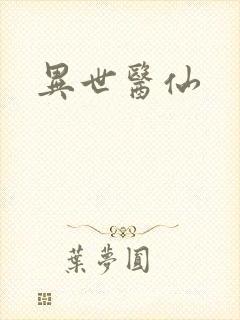 異世醫仙
葉夢圓